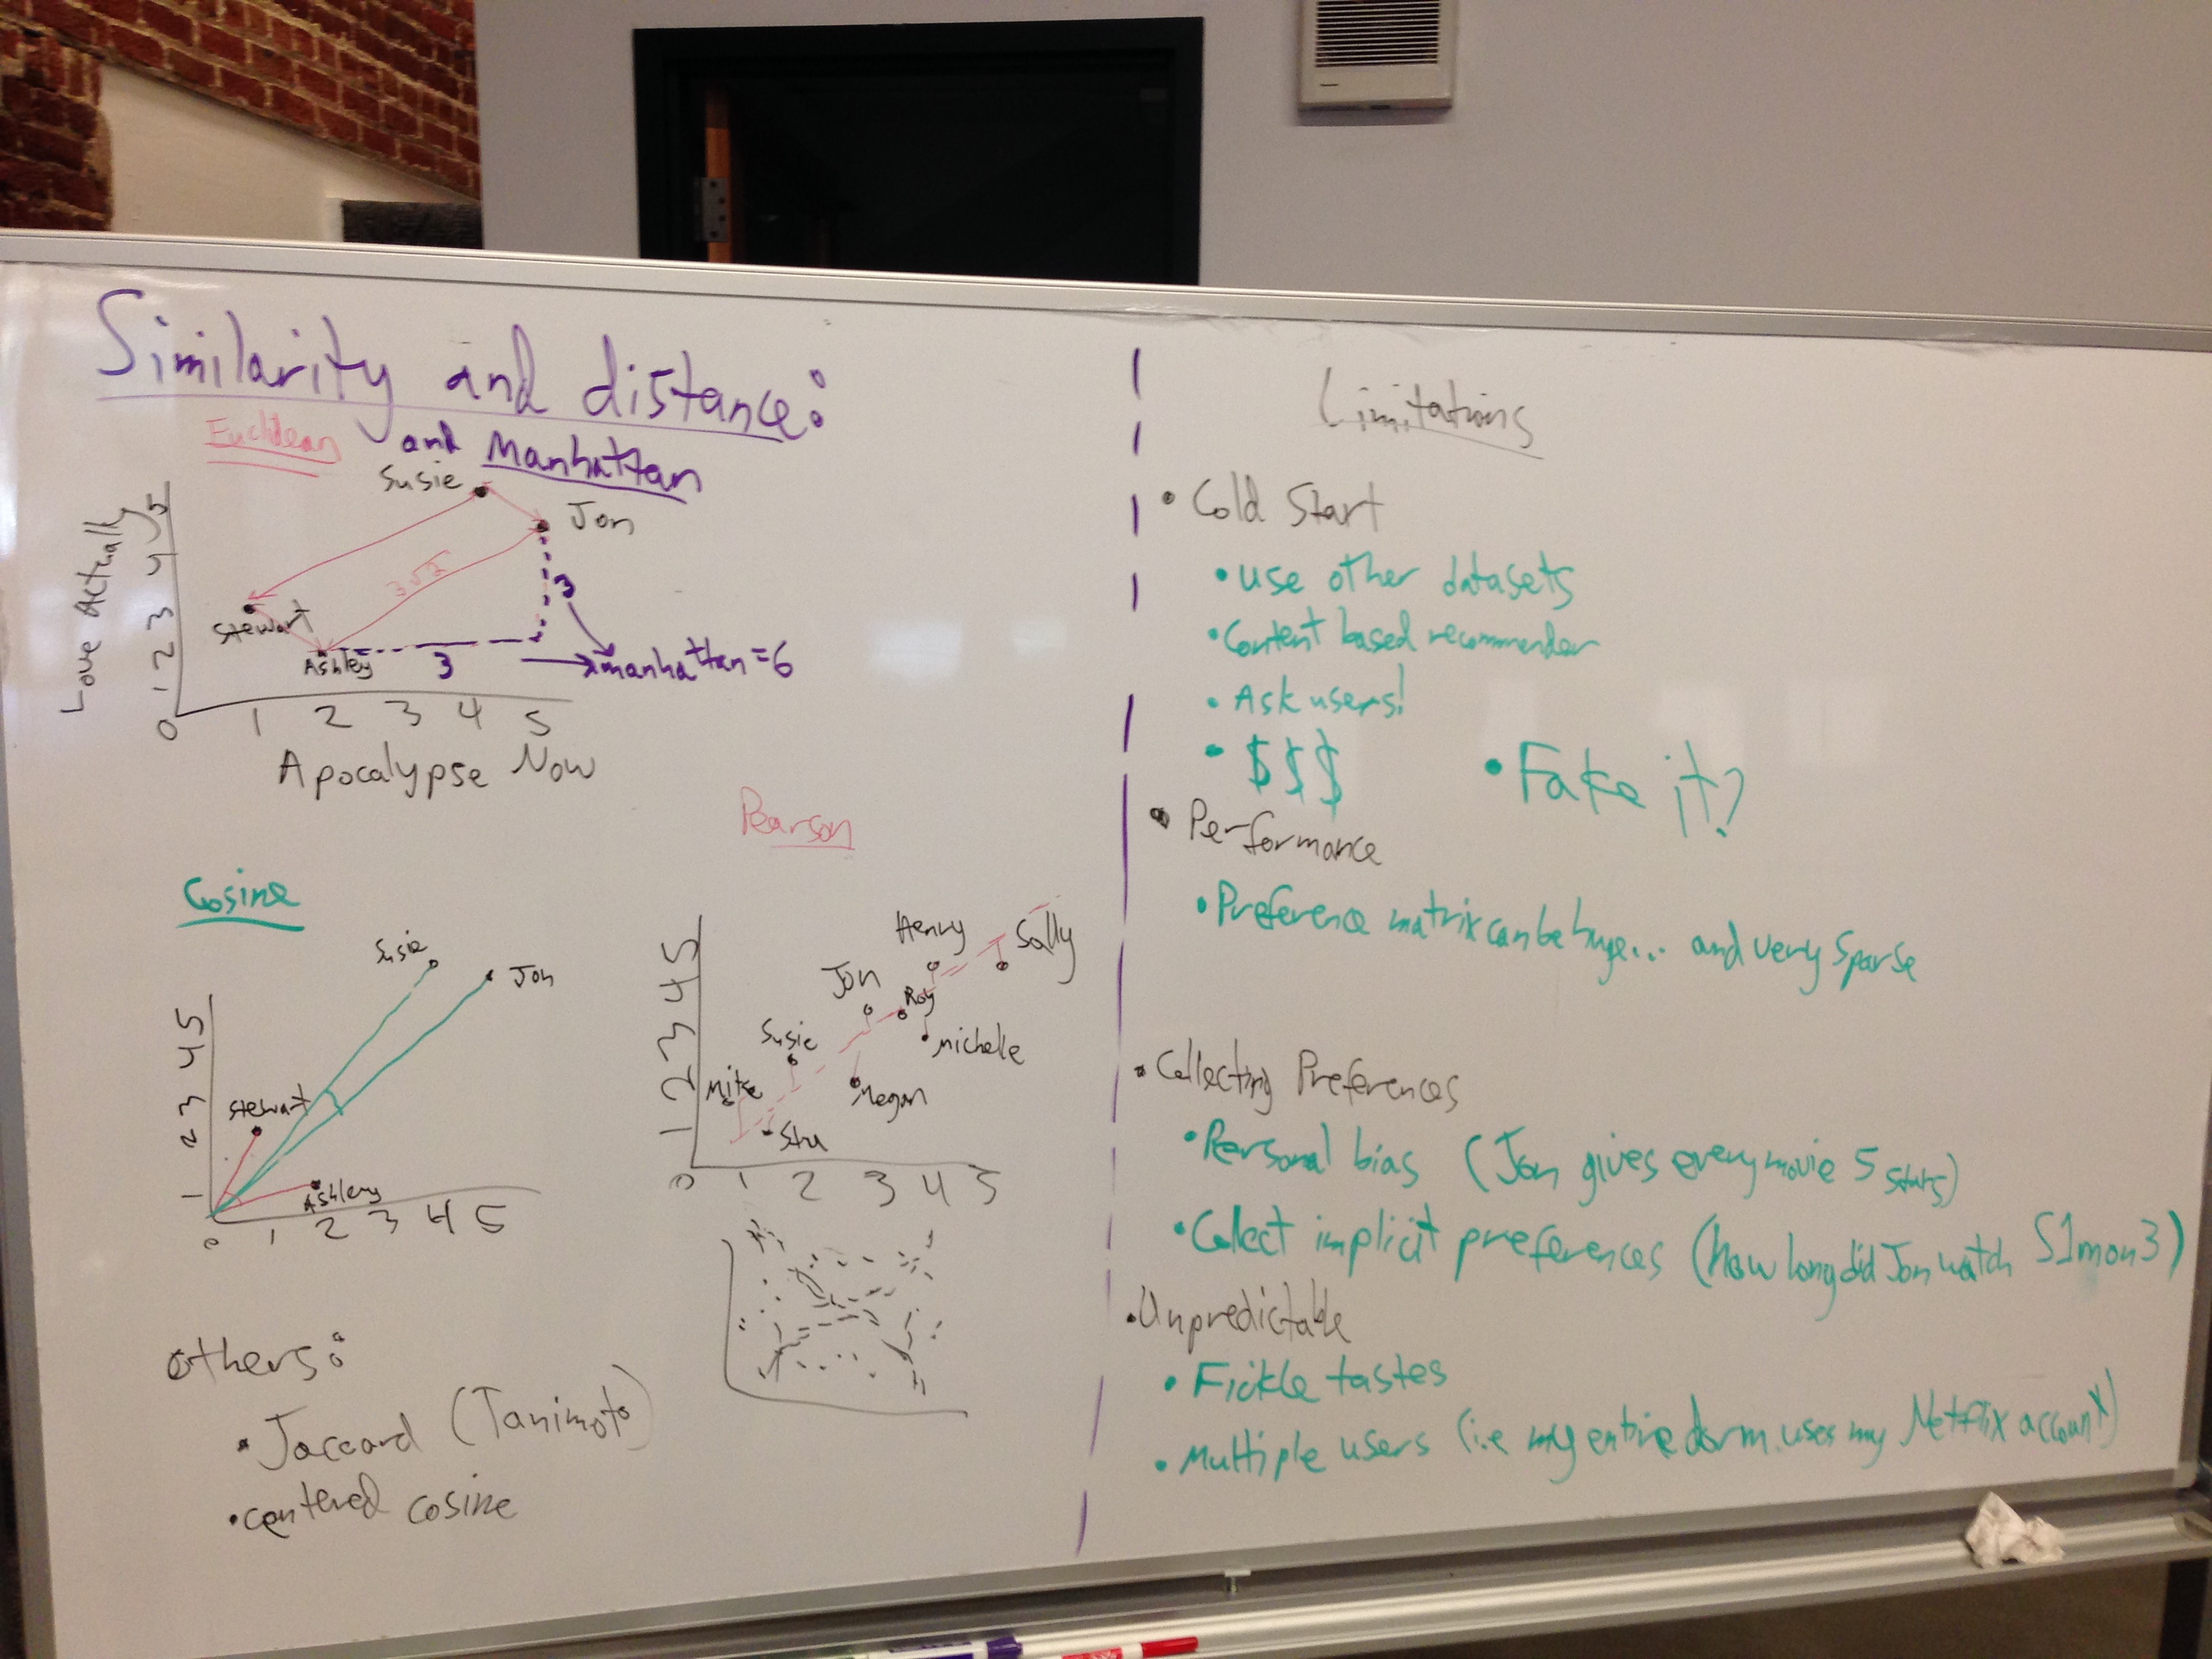 Similarity and distance:
Euclidean and Manhattan
Susie
Jon
Stewart
Ashley
3√2
3
3
manhattan = 6
Love Actually
5
4
3
2
1
0
1 2 3 4 5
Apocalypse Now
Cosine
Susie
Jon
Stewart
Ashley
5
4
3
2
1
0
1 2 3 4 5
Pearson
Henry
Sally
Jon
Roy
Susie
Michelle
Mike
Megan
Stu
5
4
3
2
1
0
1 2 3 4 5
Others:
• Jaccard (Tanimoto)
• centered cosine
Limitations
• Cold Start
• use other datasets
• Content based recommender
• Ask users!
• $$$ • Fake it?
• Performance
• Preference matrix can be huge... and very sparse
• Collecting Preferences
• Personal bias (Jon gives every movie 5 stars)
• Collect implicit preferences (how long did Jon watch S1mon3)
• Unpredictable
• Fickle tastes
• Multiple users (i.e my entire dorm uses my Netflix account)